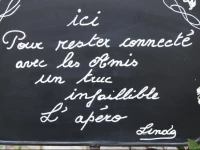 ici
Pour rester connecté
avec les Amis
un truc
infaillible
L'apéro
Linda